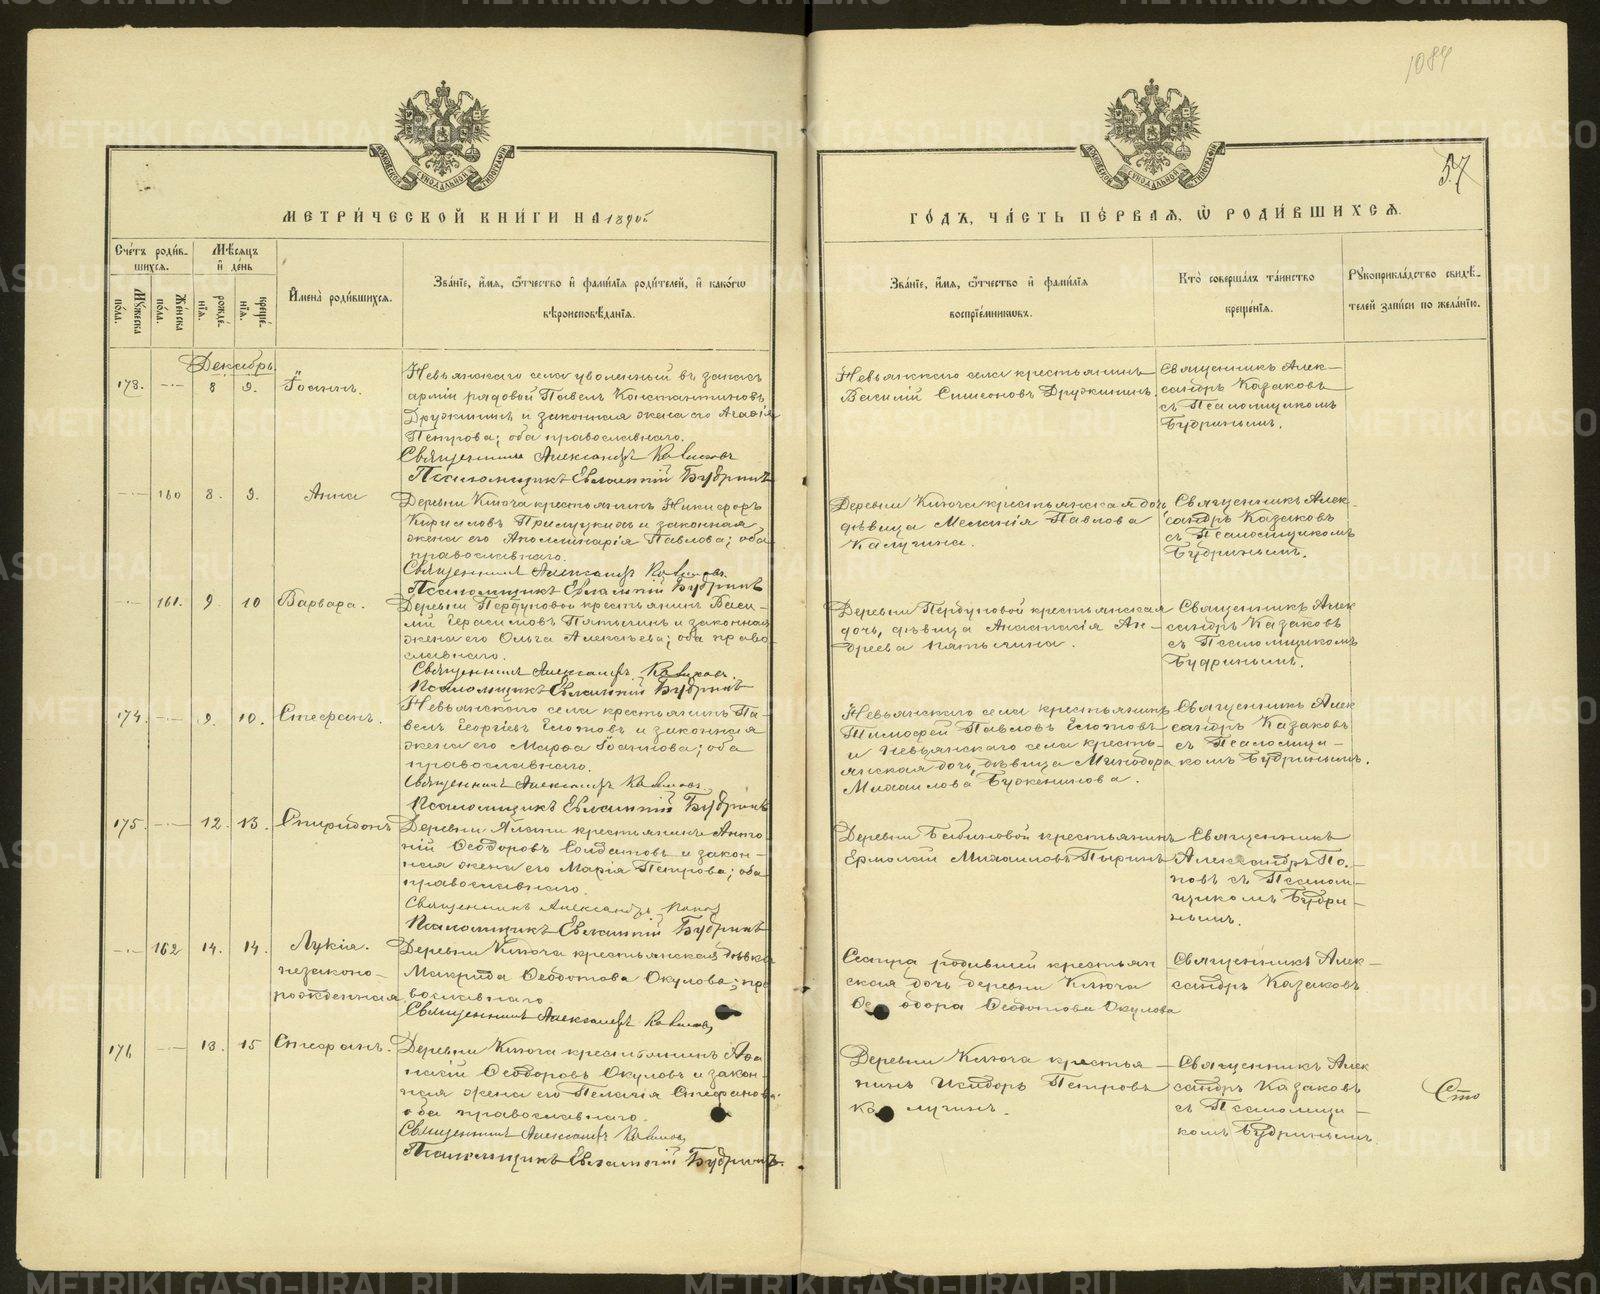 1084
57
МЕТРИ́ЧЕСКОЙ КНИ́ГИ НА 1890 г.
ГО́ДЪ, ЧА́СТЬ ПЕ́РВАЯ, Ѡ҆ РОДИ́ВШИХСЯ.
Сче́тъ роди́в-
шихся.
Му́жеска
пола.
Же́нска
пола.
Мѣ́сяцъ
и҆ де́нь
рожде́-
нїя.
креще́-
нїя.
И҆мена̀ роди́вшихся.
Зва́нїе, и҆́мя, ѻ҆́тчество и҆ фами́лїя роди́телей, и҆ како́гѡ
вѣроисповѣ́данїя.
Зва́нїе, и҆́мя, ѻ҆́тчество и҆ фами́лїя
воспрїе́мникѡвъ.
Кто̀ соверша́лъ та́инство
креще́нїя.
Рꙋкоприкла́дство свидѣ́-
телей за́писи по жела́нїю.
Декабрь
173. 8 9. Іоаннъ.
Невьянскаго села уволенный въ запасъ
арміи рядовой Павелъ Константиновъ
Дружининъ и законная жена его Агафія
Петрова; оба православнаго.
Священникъ Александръ Казаковъ
Псаломщикъ Евлампій Будринъ
Невьянскаго села крестьянинъ
Василій Симеоновъ Дружининъ.
Священникъ Алек-
сандръ Казаковъ
съ Псаломщикомъ
Будринымъ.
160 8. 9. Анна
Деревни Ключа крестьянинъ Никифоръ
Кирилловъ и законная
жена его Аполлинарія Павлова; оба
православнаго.
Священникъ Александръ Казаковъ
Псаломщикъ Евлампій Будринъ
Деревни Ключа крестьянская дочь
дѣвица Меланія Павлова
Калугина.
Священникъ Алек-
сандръ Казаковъ
съ Псаломщикомъ
Будринымъ.
161. 9 10 Варвара.
Деревни Пердуновой крестьянинъ Васи-
лій Герасимовъ Пятыгинъ и законная
жена его Ольга Алексѣева; оба право-
славнаго.
Священникъ Александръ Казаковъ
Псаломщикъ Евлампій Будринъ
Деревни Пердуновой крестьянская
дочь, дѣвица Анастасія Ан-
дреева Пятыгина.
Священникъ Алек
сандръ Казаковъ
съ Псаломщикомъ
Будринымъ.
174. 9. 10. Стефанъ.
Невьянскаго села крестьянинъ Па-
велъ Георгіевъ Глотовъ и законная
жена его Марѳа Іоаннова; оба
православнаго.
Священникъ Александръ Казаковъ
Псаломщикъ Евлампій Будринъ
Невьянскаго села крестьянинъ
Тимофей Павловъ Глотовъ
и Невьянскаго села кресть-
янская дочь, дѣвица Минодора
Михаилова
Священникъ Алек
сандръ Казаковъ
съ Псаломщи-
комъ Будринымъ.
175. 12. 13. Спиридонъ
Деревни крестьянинъ Анто-
ній Ѳеодоровъ Солдатовъ и закон-
ная жена его Марія Петрова; оба
православнаго.
Священникъ Александръ Поповъ
Псаломщикъ Евлампій Будринъ
Деревни Бабиновой крестьянинъ
Ермолай Михаиловъ Ширинъ
Священникъ
Александръ По-
повъ съ Псалом-
щикомъ Будри-
нымъ.
162 14. 14. Лукія.
незаконо-
рожденная
Деревни Ключа крестьянская дѣвка
Макрида Ѳеодотова Окулова; пра
вославнаго.
Священникъ Александръ Казаковъ
Сестра родившей крестьян
ская дочь деревни Ключа
Ѳеодора Ѳеодотова Окулова
Священникъ Алек-
сандръ Казаковъ
176 13. 15 Стефанъ.
Деревни Ключа крестьянинъ Ава
Ѳеодоровъ Окуловъ и закон-
ная жена его Пелагія Стефанова;
оба православнаго.
Священникъ Александръ Казаковъ
Псаломщикъ Евлампій Будринъ.
Деревни Ключа крестья-
нинъ Исидоръ Петровъ
Калугинъ.
Священникъ Алек
сандръ Казаковъ
съ Псаломщи-
комъ Будринымъ.
Сто
METRIKI.GASO-URAL.RU